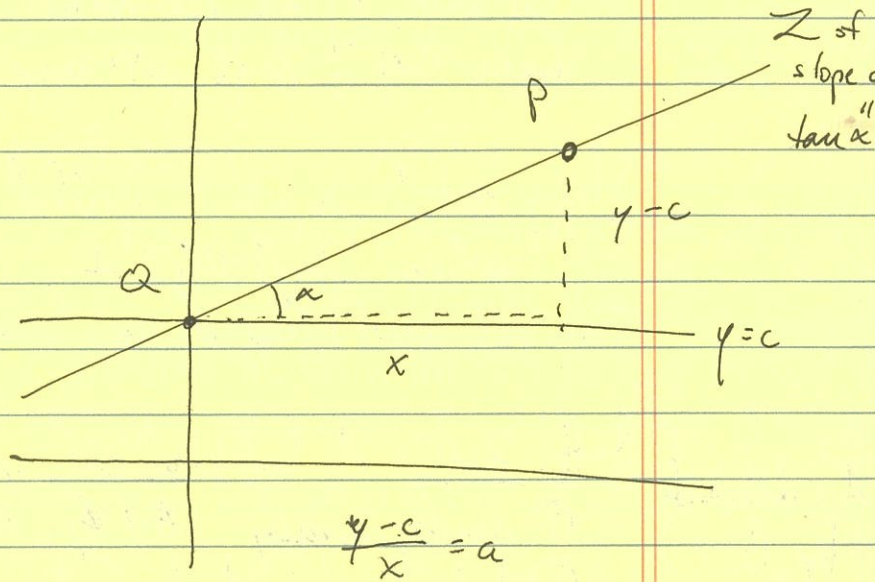 Z of
slope a
"
tan α
P
y - c
Q
α
y = c
x
y - c
x = a